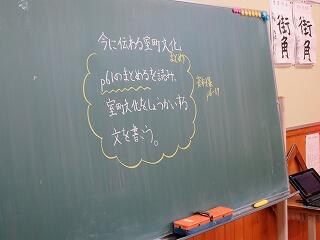 今に伝わる室町文化
まとめ
p61のまとめるを読み、
室町文化をしょうかいする
文を書こう。
街角
街角